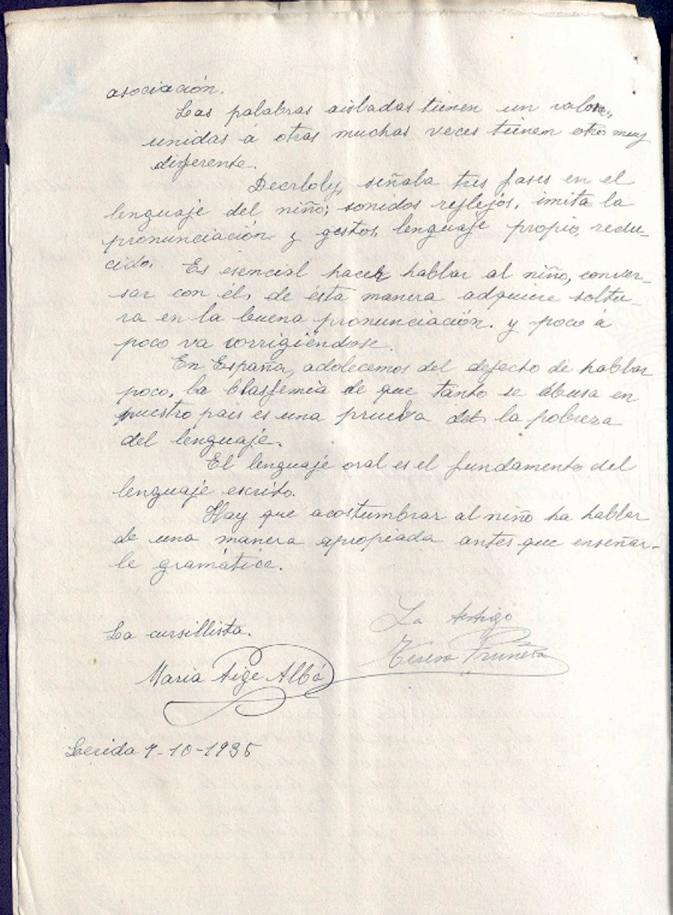 asociación.
Las palabras aisladas tienen un valor,
unidas a otras muchas veces tienen otro muy
diferente.
Decrloly, señaba tres fases en el
lenguaje del niño; sonidos reflejos, imita la
pronunciación y gestos, lenguaje propio, redu-
cido. Es esencial hacer hablar al niño, conver-
sar con él, de esta manera adquiere soltu-
ra en la buena pronunciación. y poco á
poco va corrigiéndose.
En España, adolecemos del defecto de hablar
poco, la blasfemia de que tanto se abusa en
nuestro pais es una prueba de la pobreza
del lenguaje.
El lenguaje oral es el fundamento del
lenguaje escrito.
Hay que acostumbrar al niño ha hablar
de una manera apropiada antes que enseñar-
le gramática.
La cursillista.
La testigo
Maria Aige Albá
Teresa
Lerida 7-10-1935